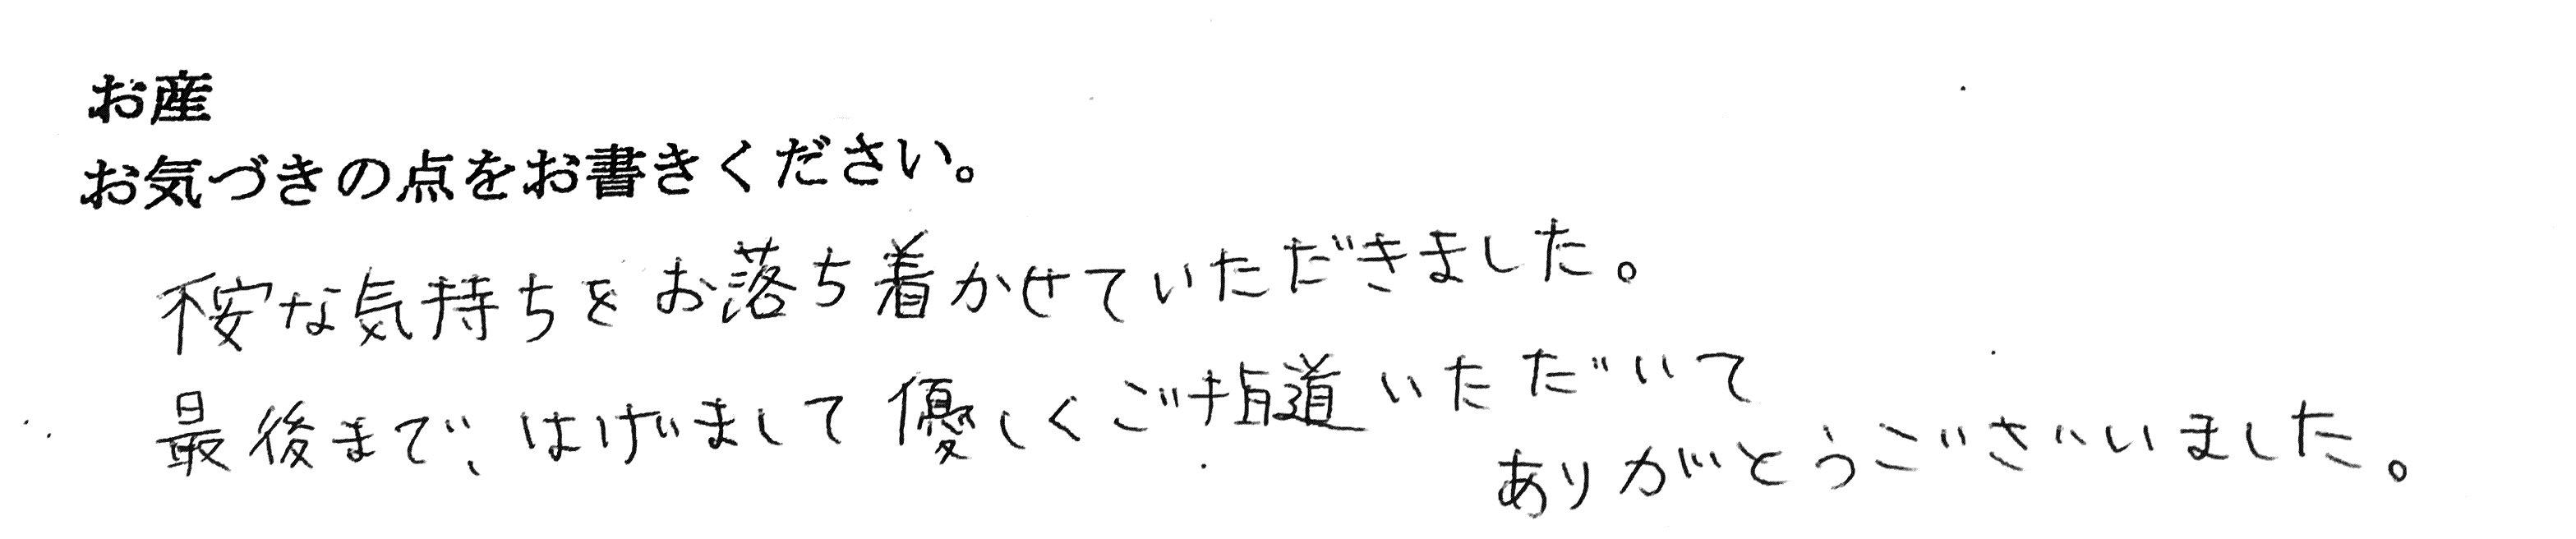 お産
お気づきの点をお書きください。
不安な気持ちをお落ち着かせていただきました。
最後まで、はげまして優しくご指道いただいて
ありがとうございました。